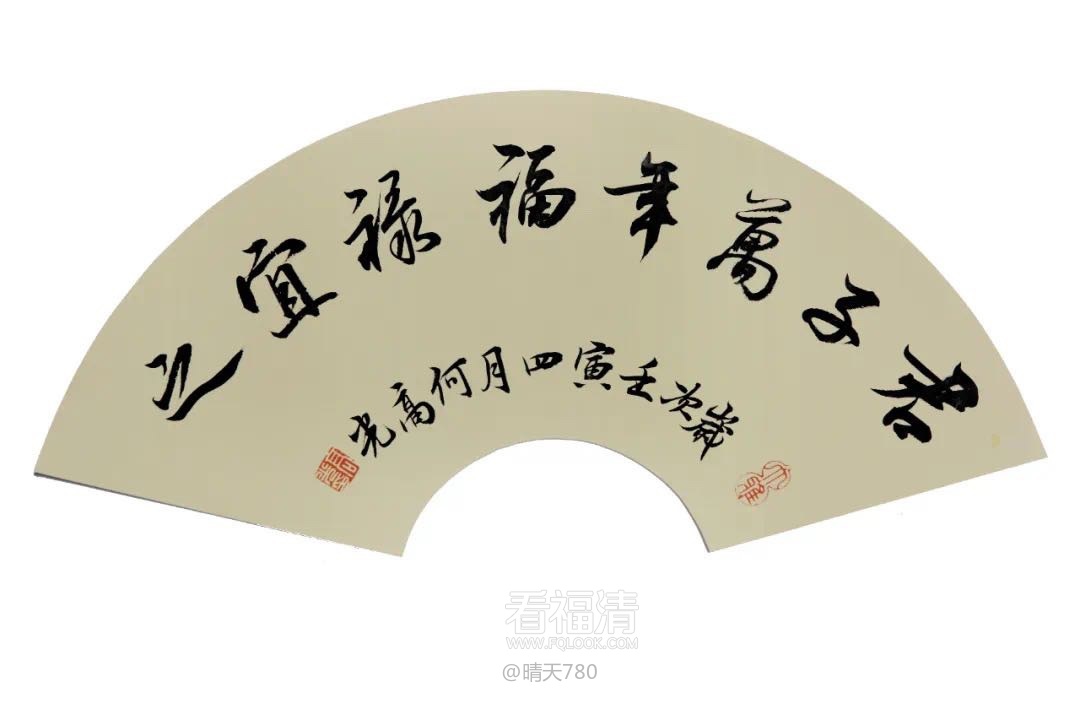 君子萬年福禄宜之
歲次壬寅四月何高光
大雅
看福清
WWW.FQLOOK.COM
@晴天780